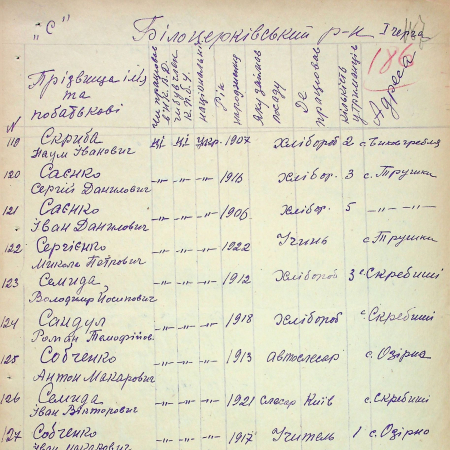 "С" Білоцерківський р-н І черга
186
№ Прізвища ім'я та побатькові національн. Рік народження Яку займав посаду Де працював кількість утриманців Адреса
119 Скриба Наум Іванович ці ці укр. 1907 Хлібороб 2
120 Саєнко Сергій Данилович -"- -"- -"- 1916 Хлібор. 3 с. Трушки
121 Саєнко Іван Данилович -"- -"- -"- 1906 Хлібор. 5 -"- -"-
122 Сергієнко Микола Петрович -"- -"- -"- 1922 Учинь с. Трушки
123 Семида Володимир Йосипович -"- -"- -"- 1912 Хлібороб 3 с. Скребиші
124 Сандул Роман Тимофійов. -"- -"- -"- 1918 Хлібороб с. Скребиші
125 Собченко Антон Макарович -"- -"- -"- 1913 автослесар с. Озірна
126 Семида Іван Вікторович -"- -"- -"- 1921 Слесар Київ с. Скребиші
127 Собченко Іван Макарович -"- -"- -"- 1917 Учитель 1 с. Озірно